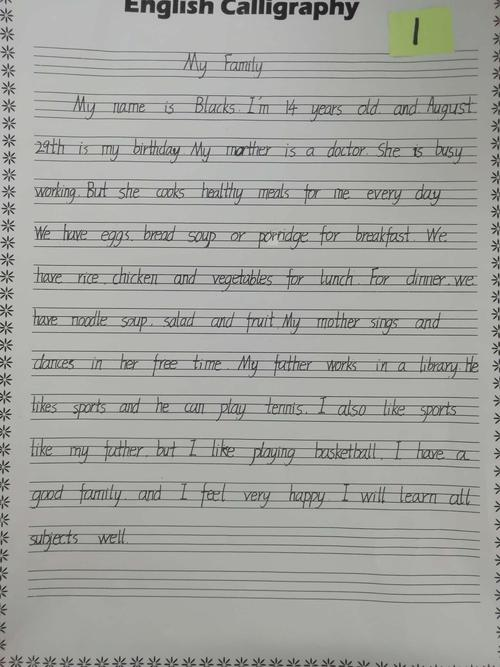 English Calligraphy
1
My Family
My name is Blacks. I'm 14 years old. and August
29th is my birthday. My morther is a doctor. She is busy
working. But she cooks healthy meals for me every day
We have eggs. bread soup or porridge for breakfast. We
have rice. chicken and vegetables for lunch. For dinner. we
have noodle soup. salad and fruit. My mother sings and
dances in her free time. My father works in a library. He
likes sports and he can play tennis. I also like sports
like my father. but I like playing basketball. I have a
good family. and I feel very happy. I will learn all
subjects well.